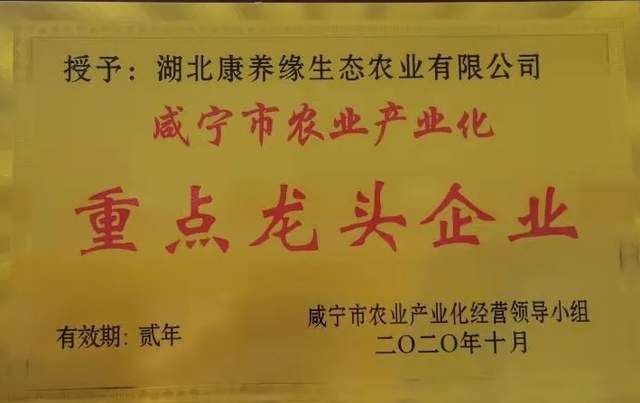 授予：湖北康养缘生态农业有限公司
咸宁市农业产业化
重点龙头企业
咸宁市农业产业化经营领导小组
有效期：贰年
二〇二〇年十月